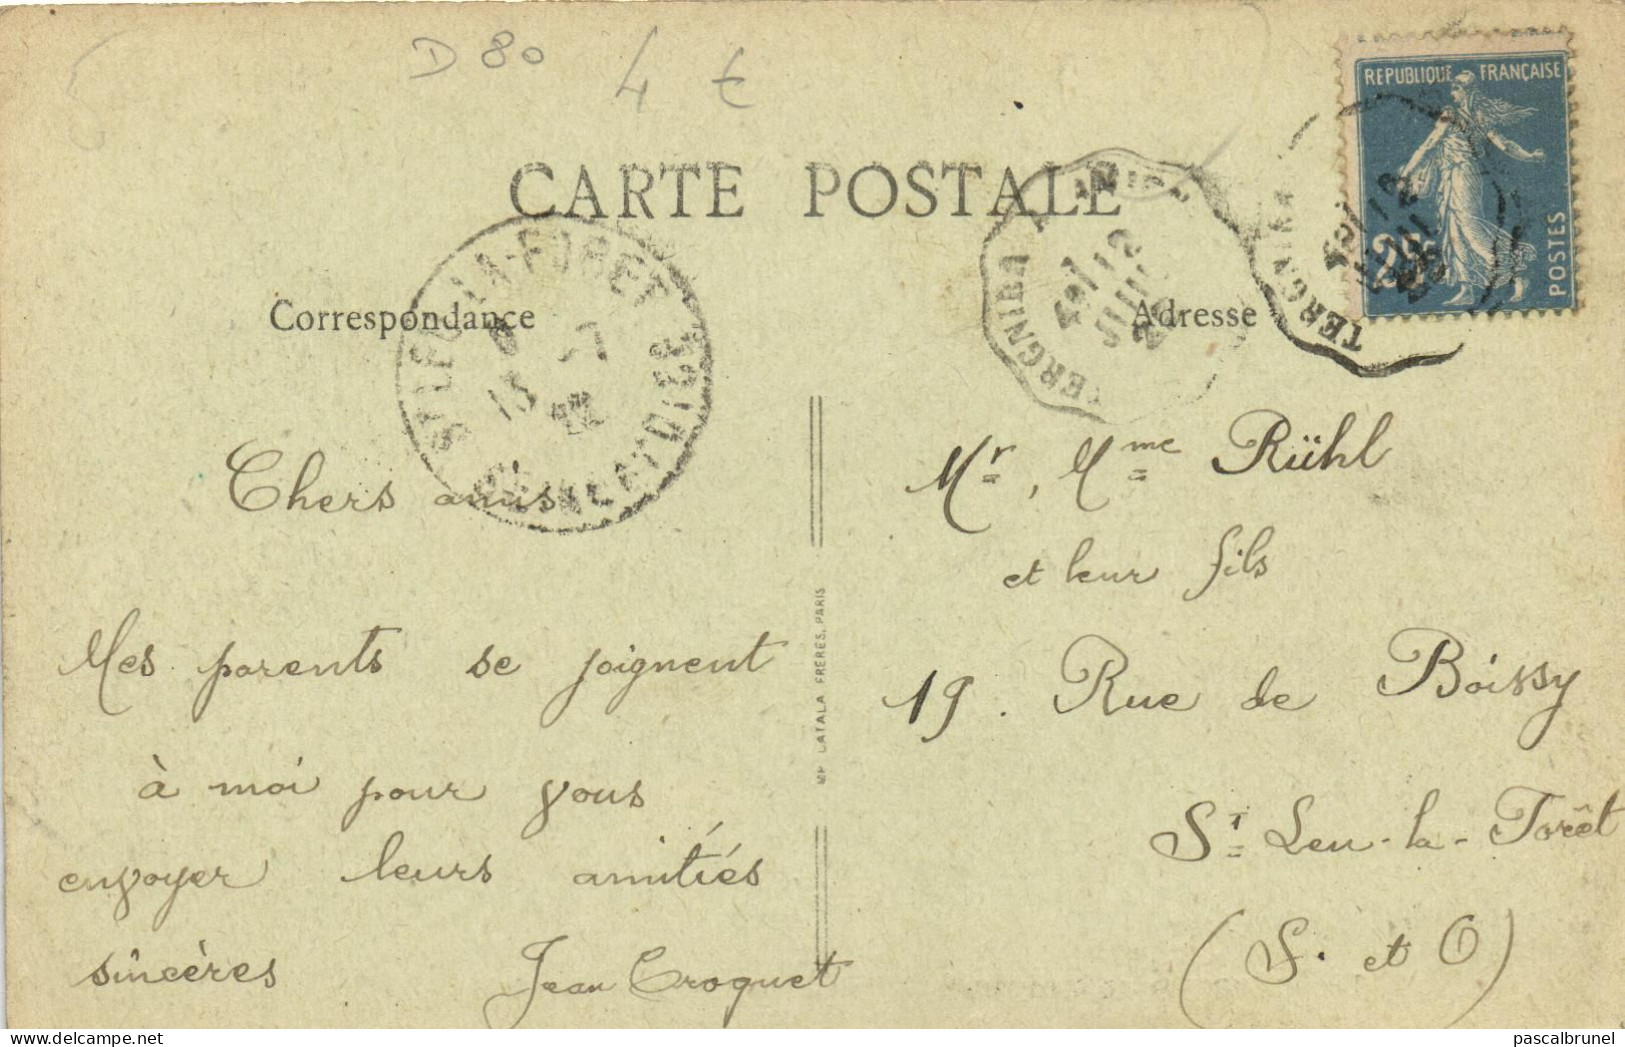 D 80
4 €
REPUBLIQUE FRANÇAISE
25c
POSTES
CARTE POSTALE
TERGNIER
TERGNIER
Correspondance
Adresse
ST LEU-LA-FORET
13 -7
22
SEINE-ET-OISE
Chers amis
Mes parents se joignent
à moi pour vous
envoyer leurs amitiés
sincères Jean Croquet
IMP. CATALA FRERES, PARIS
Mr, Mme Rühl
et leur fils
19. Rue de Boissy
St Leu-la-Forêt
(S. et O)
www.delcampe.net
pascalbrunel